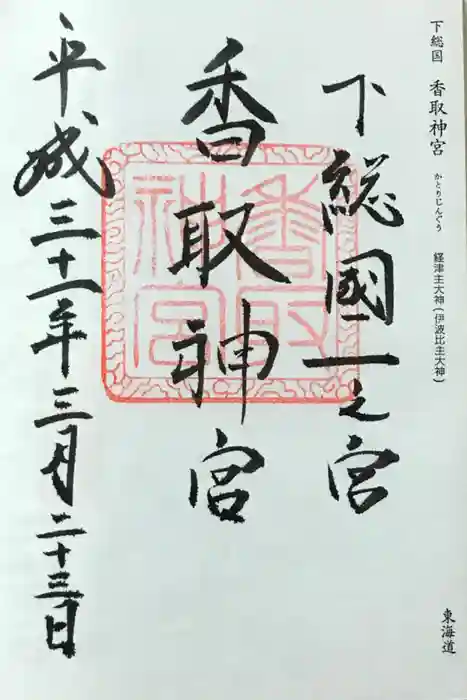 下総国 香取神宮 経津主大神(伊波比主大神)
かとりじんぐう
東海道
下総國一之宮
香取神宮
香取神宮
平成三十一年三月二十三日